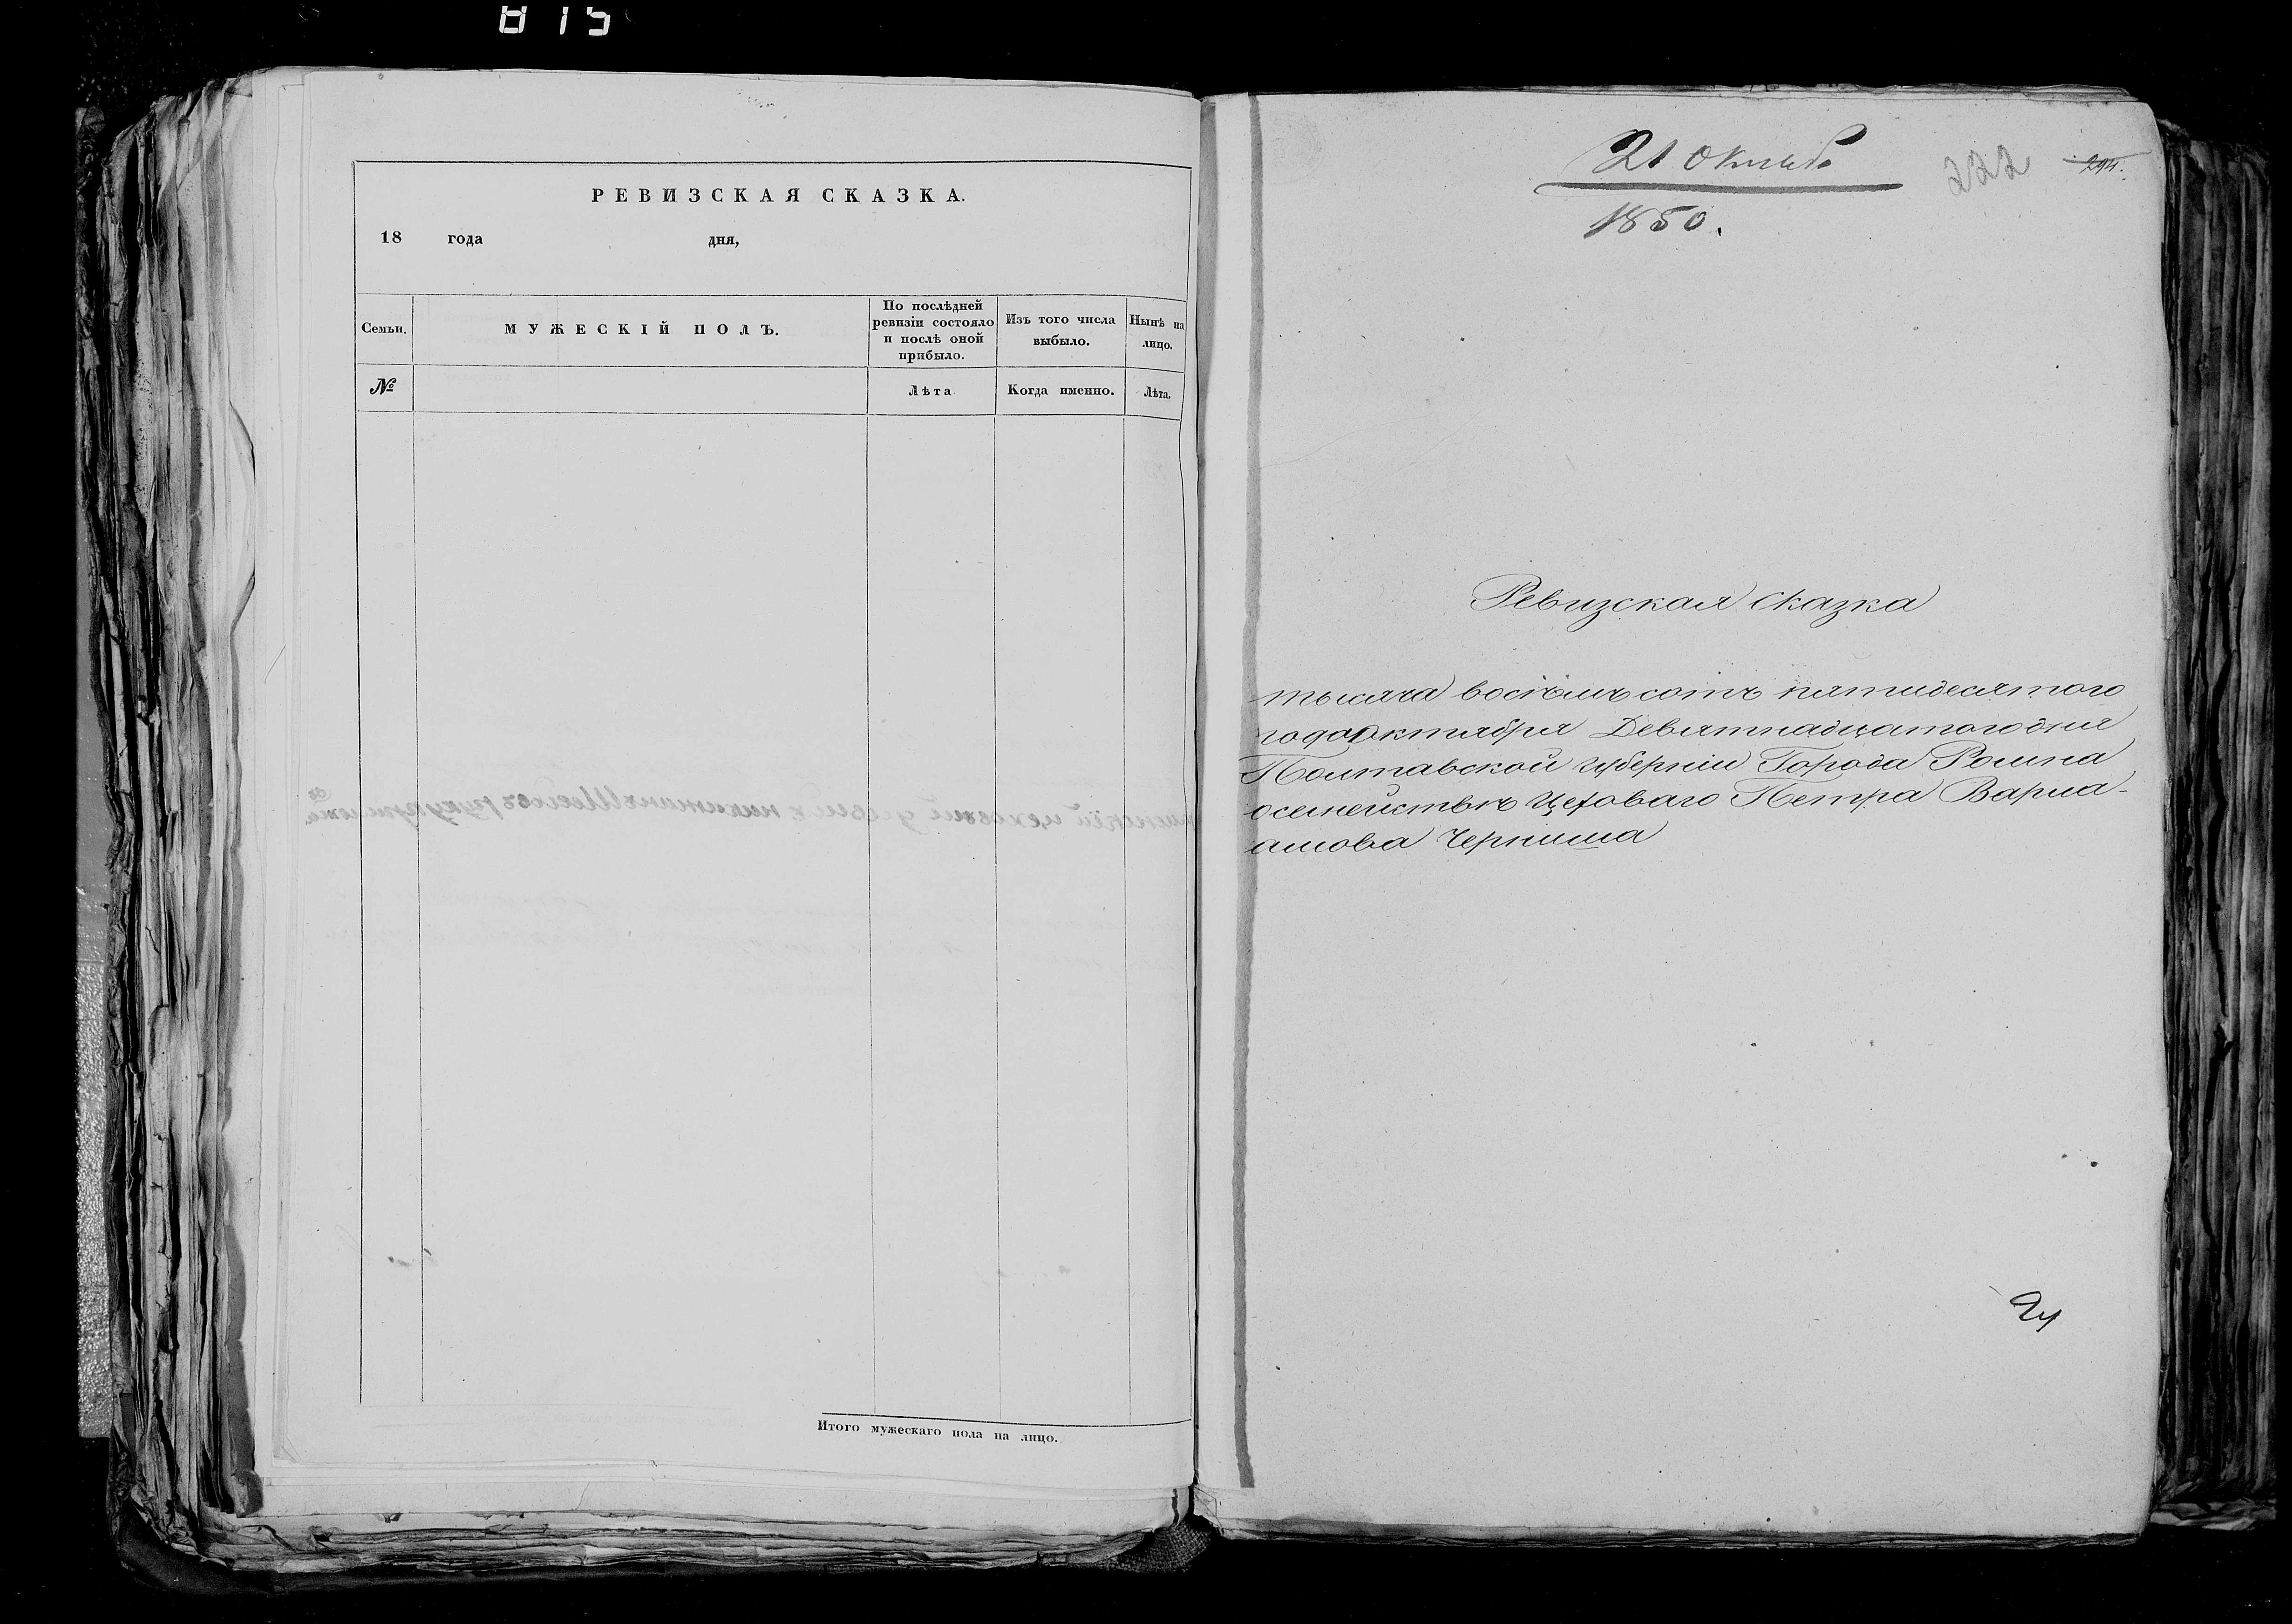 815
РЕВИЗСКАЯ СКАЗКА.
18 года дня,
Семьи.
МУЖЕСКІЙ ПОЛЪ.
По послѣдней
ревизіи состояло
и послѣ оной
прибыло.
Изъ того числа
выбыло.
Нынѣ на
лицо.
№
Лѣта
Когда именно.
Лѣта.
Итого мужескаго пола на лицо.
21 Октяб
1850.
222
Ревизская Сказка
тысяча восѣмъ сотъ пятидесятого
года Октября Девятнадцатого дня
Полтавской губерніи Города Ромна
осемействѣ Цехо́ваго Петра Варла-
амова Черниша